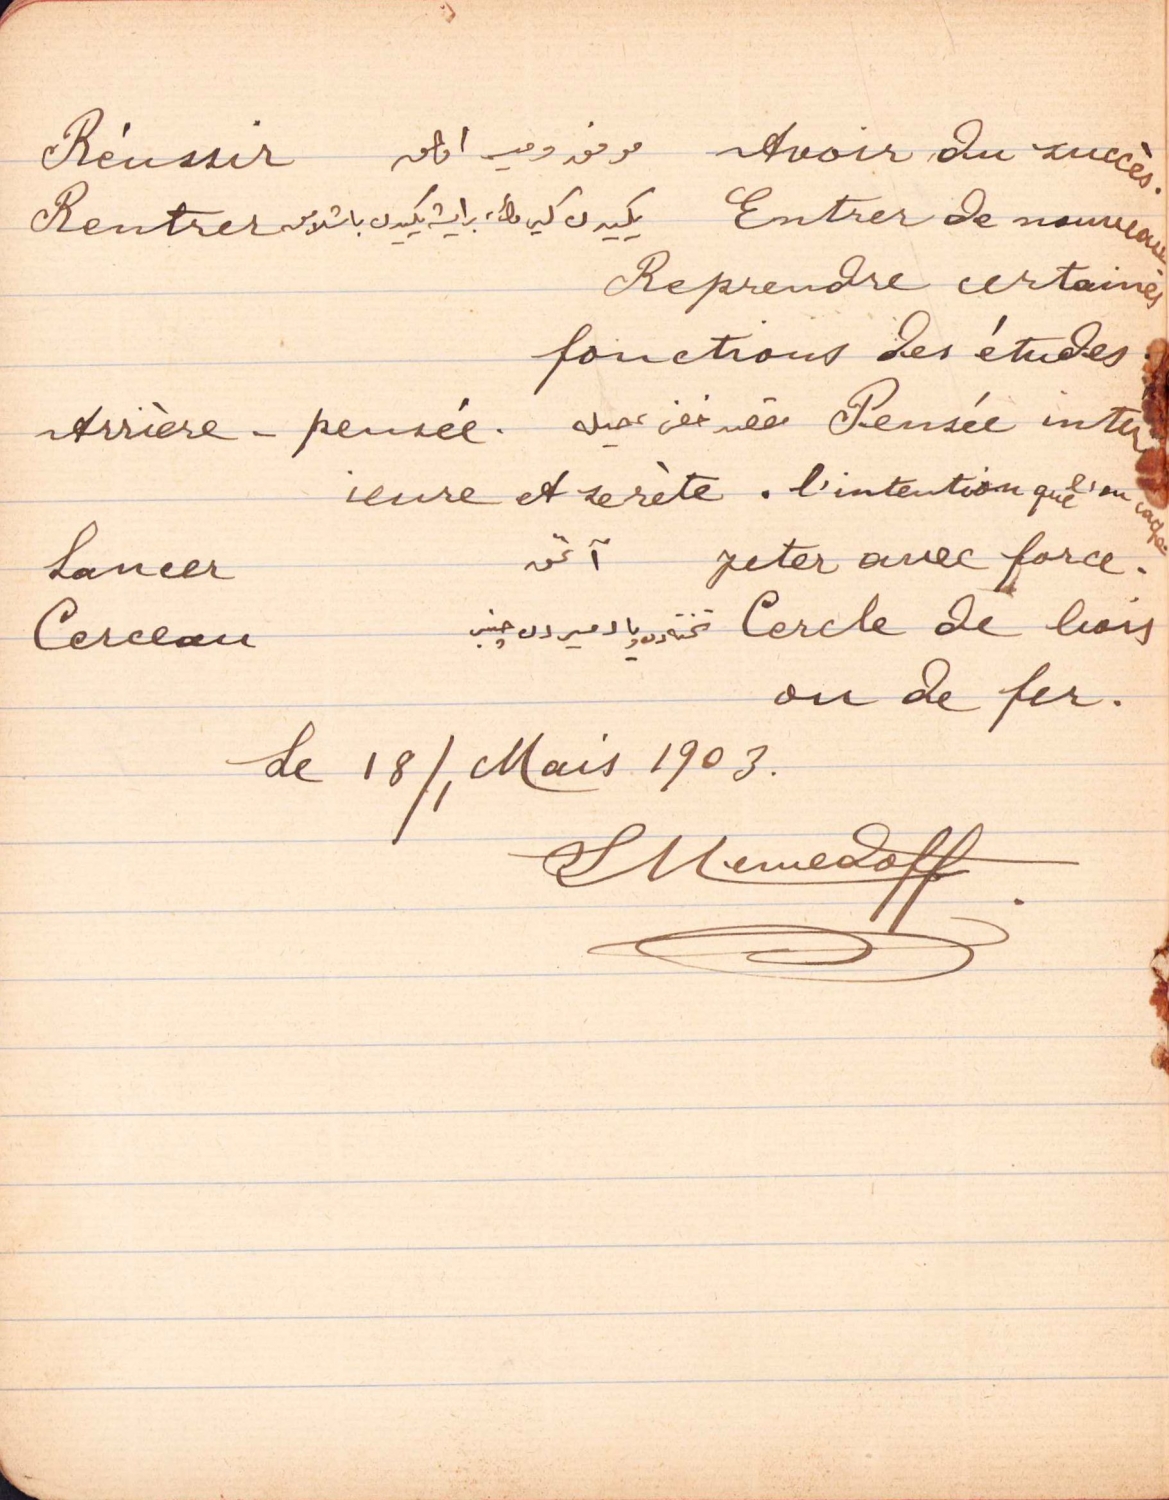 Réussir اولمق Avoir du succès.
Rentrer يكيدن باشلامق Entrer de nouveau
Reprendre certaines
fonctions des études.
Arrière - pensée. Pensée inter
ieure et serète. l'intention que l'on cache
Lancer آتمق Jeter avec force.
Cerceau تخته‌دن يا دميردن چنبر Cercle de bois
ou de fer.
Le 18/1 Mais 1903.
S Memedoff